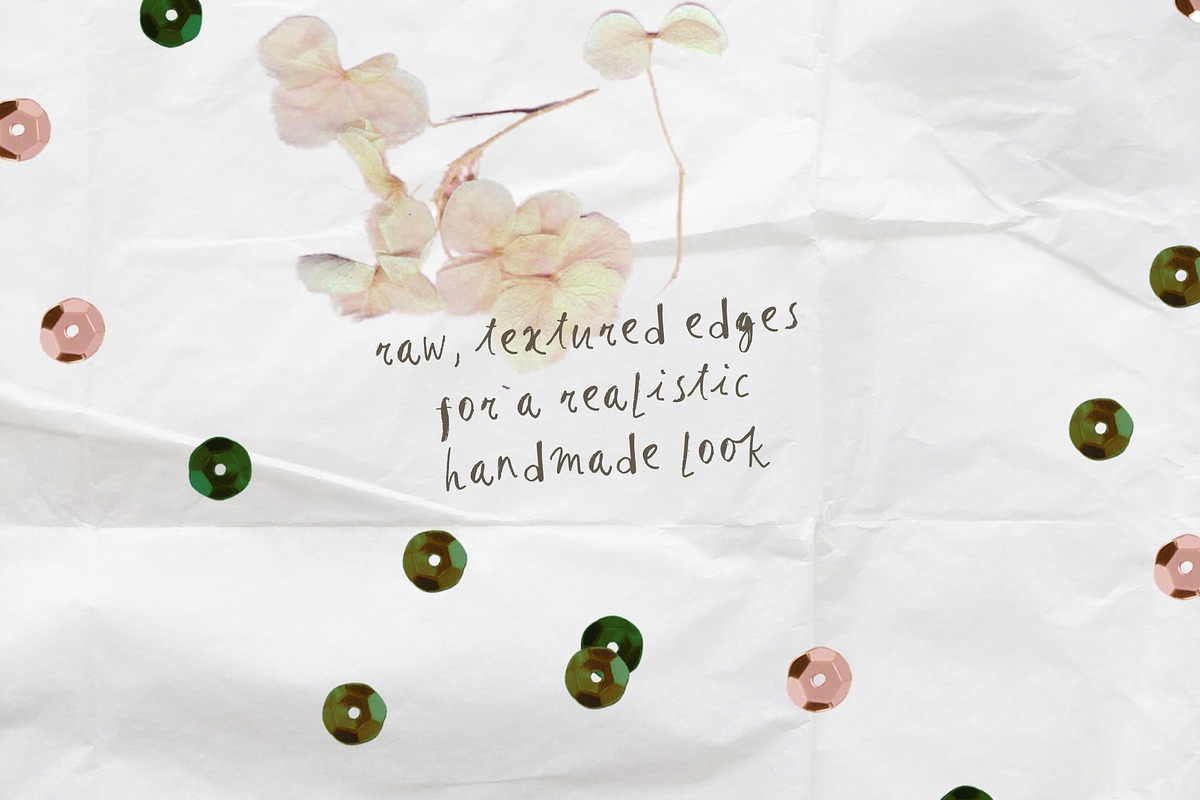 raw, textured edges
for a realistic
handmade look